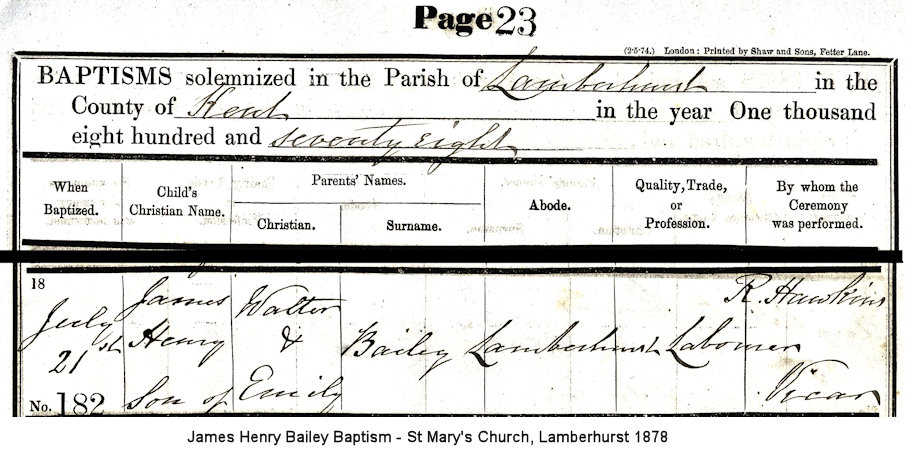 Page 23
(2·5·74.) London: Printed by Shaw and Sons, Fetter Lane.
BAPTISMS solemnized in the Parish of Lamberhurst in the
County of Kent in the year One thousand
eight hundred and seventy eight
When Baptized.
Child's Christian Name.
Parents' Names.
Christian.
Surname.
Abode.
Quality, Trade, or Profession.
By whom the Ceremony was performed.
18
July
21st
No. 182
James
Henry
Son of
Walter
&
Emily
Bailey
Lamberhurst
Labourer
R. Hawkins
Vicar
James Henry Bailey Baptism - St Mary's Church, Lamberhurst 1878